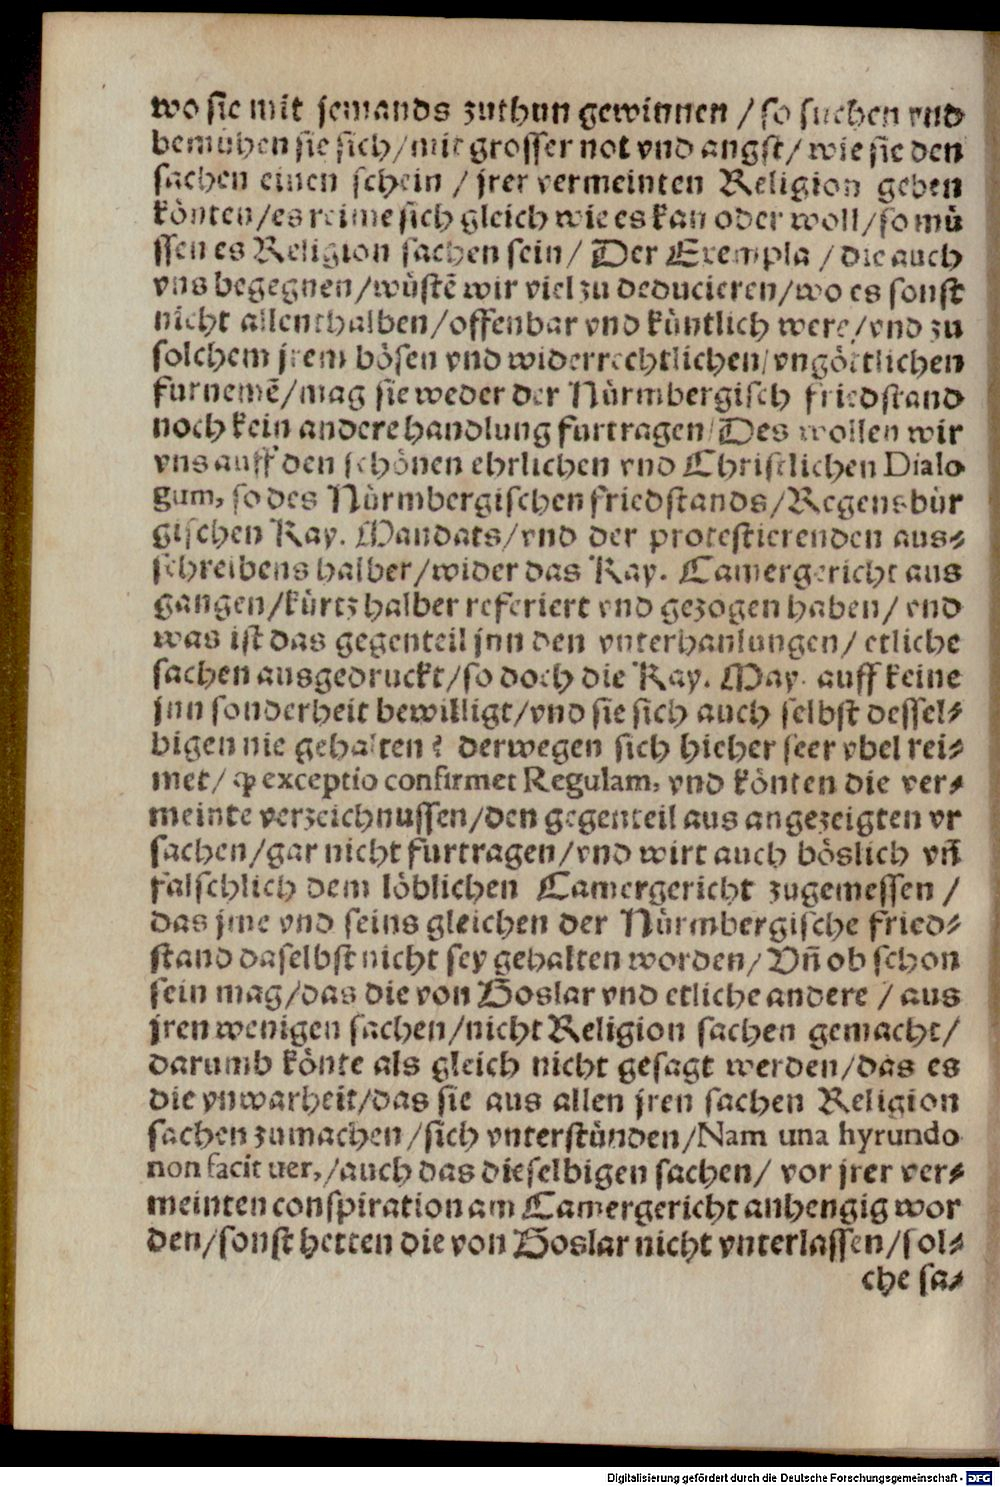 wo sie mit jemands zuthun gewinnen / so suchen vnd
bemühen sie sich / mit grosser not vnd angst / wie sie den
sachen einen schein / jrer vermeinten Religion geben
könten / es reime sich gleich wie es kan oder woll / so mü
ssen es Religion sachen sein / Der Exempla / die auch
vns begegnen / wüstē wir viel zu deducieren / wo es sonst
nicht allenthalben / offenbar vnd küntlich were / vnd zu
solchem jrem bösen vnd widerrechtlichen / vngöttlichen
furnemē / mag sie weder der Nürmbergisch friedstand
noch kein andere handlung furtragen / Des wollen wir
vns auff den schönen ehrlichen vnd Christlichen Dialo
gum, so des Nürmbergischen friedstands / Regensbür
gischen Kay. Mandats / vnd der protestierenden aus⸗
schreibens halber / wider das Kay. Camergericht aus
gangen / kürtz halber referiert vnd gezogen haben / vnd
was ist das gegenteil jnn den vnterhanlungen / etliche
sachen ausgedruckt / so doch die Kay. May. auff keine
jnn sonderheit bewilligt / vnd sie sich auch selbst dessel⸗
bigen nie gehalten ? derwegen sich hieher seer vbel rei⸗
met / ꝙ exceptio confirmet Regulam, vnd könten die ver⸗
meinte verzeichnussen / den gegenteil aus angezeigten vr
sachen / gar nicht furtragen / vnd wirt auch böslich vñ
falschlich dem löblichen Camergericht zugemessen /
das jme vnd seins gleichen der Nürmbergische fried⸗
stand daselbst nicht sey gehalten worden / Vñ ob schon
sein mag / das die von Goslar vnd etliche andere / aus
jren wenigen sachen / nicht Religion sachen gemacht /
darumb könte als gleich nicht gesagt werden / das es
die vnwarheit / das sie aus allen jren sachen Religion
sachen zumachen / sich vnterstünden / Nam una hyrundo
non facit uer, / auch das dieselbigen sachen / vor jrer ver⸗
meinten conspiration am Camergericht anhengig wor
den / sonst hetten die von Goslar nicht vnterlassen / sol⸗
che sa⸗
Digitalisierung gefördert durch die Deutsche Forschungsgemeinschaft - DFG